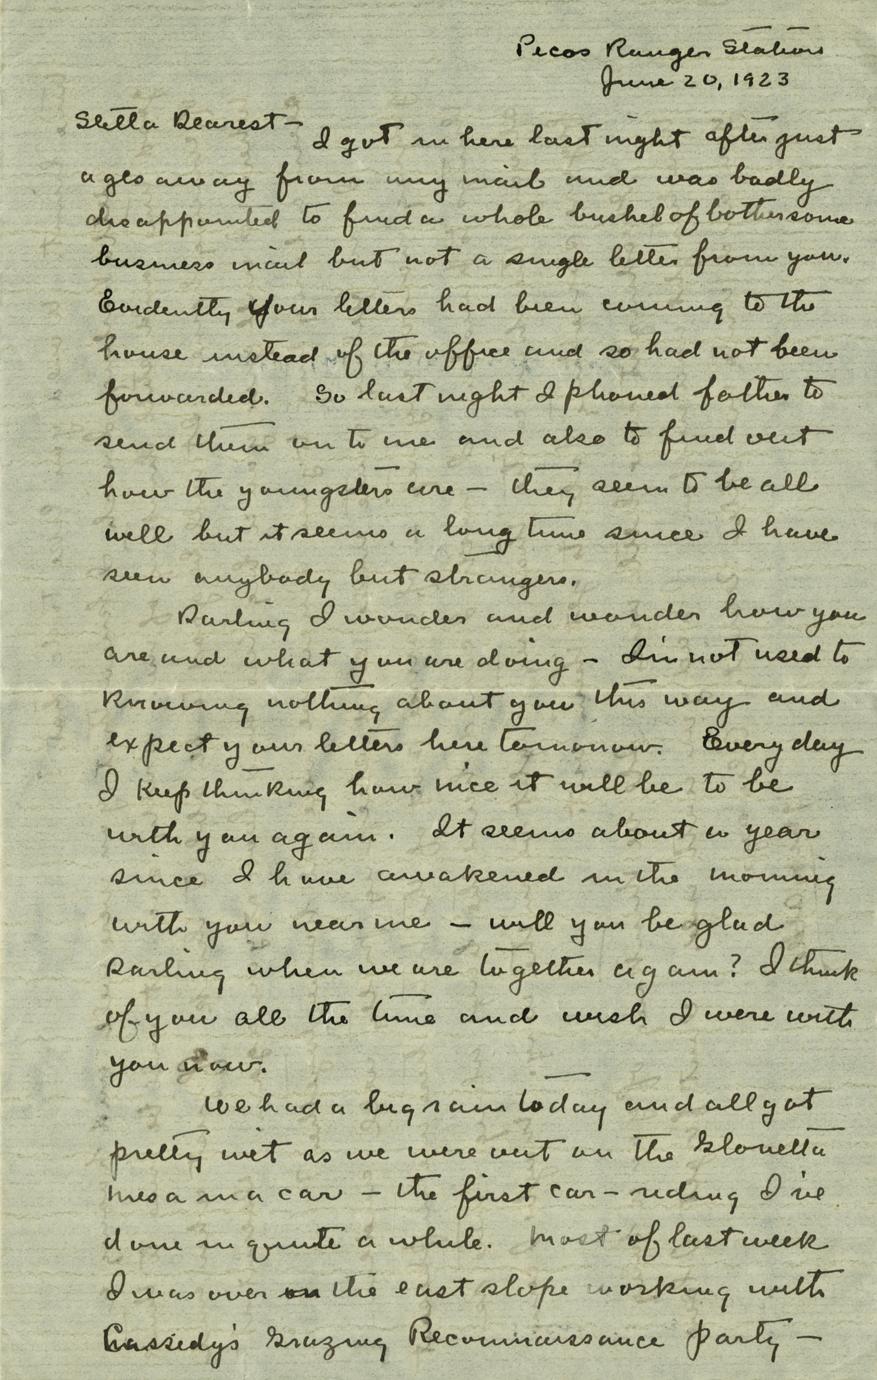 Pecos Ranger Station
June 20, 1923
Stella Dearest –
I got in here last night after just
ages away from any mail and was badly
disappointed to find a whole bushel of bothersome
business mail but not a single letter from you.
Evidently your letters had been coming to the
house instead of the office and so had not been
forwarded. So last night I phoned father to
send them on to me and also to find out
how the youngsters are – they seem to be all
well but it seems a long time since I have
seen anybody but strangers.
Darling I wonder and wonder how you
are and what you are doing – I'm not used to
knowing nothing about you this way and
expect your letters here tomorrow. Every day
I keep thinking how nice it will be to be
with you again. It seems about a year
since I have awakened in the morning
with you near me – will you be glad
Darling when we are together again? I think
of you all the time and wish I were with
you now.
We had a big rain today and all got
pretty wet as we were out on the Glorietta
mesa in a car – the first car-riding I've
done in quite a while. Most of last week
I was over on the east slope working with
Cassedy's Grazing Reconnaissance party –